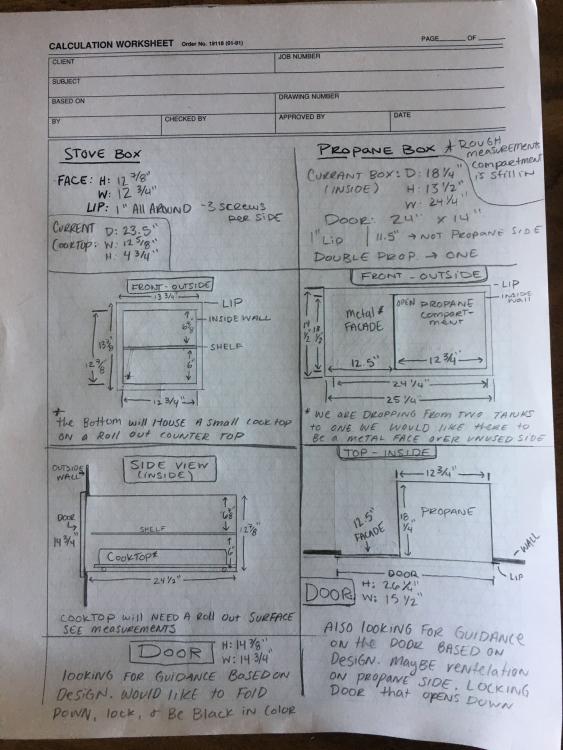 CALCULATION WORKSHEET Order No. 19116 (01-91) PAGE ____ OF ____
CLIENT JOB NUMBER
SUBJECT
BASED ON DRAWING NUMBER
BY CHECKED BY APPROVED BY DATE
STOVE BOX
FACE: H: 12 7/8"
W: 12 3/4"
LIP: 1" ALL AROUND - 3 SCREWS
PER SIDE
CURRENT D: 23.5"
COOKTOP: W: 12 5/8"
H: 4 3/4"
PROPANE BOX * ROUGH
MEASUREMENTS
COMPARTMENT
IS STILL IN
CURRANT BOX: D: 18 1/4"
(INSIDE) H: 13 1/2"
W: 24 1/4"
DOOR: 24" x 14"
1" Lip 11.5" → NOT PROPANE SIDE
DOUBLE PROP. → ONE
FRONT - OUTSIDE
13 3/4"
LIP
INSIDE WALL
SHELF
6"
12 3/4"
*
the Bottom will HOUSE A SMALL COOKTOP
ON A ROLL OUT COUNTER TOP
FRONT - OUTSIDE
LIP
INSIDE
wall
Metal*
FACADE
OPEN PROPANE
COMPART-
MENT
12.5"
12 3/4"
24 1/4"
25 1/4"
* WE ARE DROPPING FROM TWO TANKS
to ONE WE WOULD LIKE THERE to
BE A METAL FACE OVER UNUSED SIDE
OUTSIDE
WALL
SIDE VIEW
(INSIDE)
DOOR
14 3/4"
SHELF
COOKTOP*
12 7/8"
6"
24 1/2"
COOKTOP will NEED A ROLL OUT SURFACE
SEE MEASUREMENTS
TOP - INSIDE
12 3/4"
12.5"
FACADE
18 1/4"
PROPANE
WALL
LIP
DOOR
DOOR H: 26 1/4"
W: 15 1/2"
DOOR H: 14 7/8"
W: 14 3/4"
LOOKING FOR GUIDANCE BASED ON
DESIGN. WOULD LIKE to FOLD
DOWN, lock, & BE BLACK IN COLOR
ALSO LOOKING FOR GUIDANCE
ON the DOOR BASED ON
DESIGN. MAYBE VENTELATION
ON PROPANE SIDE. LOCKING
DOOR that OPENS DOWN